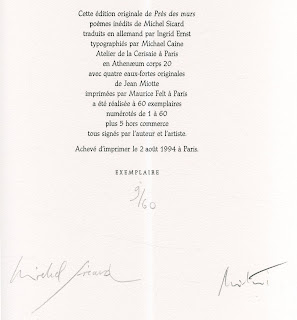 Cette édition originale de Près des murs
poèmes inédits de Michel Sicard
traduits en allemand par Ingrid Ernst
typographiés par Michael Caine
Atelier de la Cerisaie à Paris
en Athenæum corps 20
avec quatre eaux-fortes originales
de Jean Miotte
imprimées par Maurice Felt à Paris
a été réalisée à 60 exemplaires
numérotés de 1 à 60
plus 5 hors commerce
tous signés par l'auteur et l'artiste.
Achevé d'imprimer le 2 août 1994 à Paris.
EXEMPLAIRE
9/60
Michel Sicard